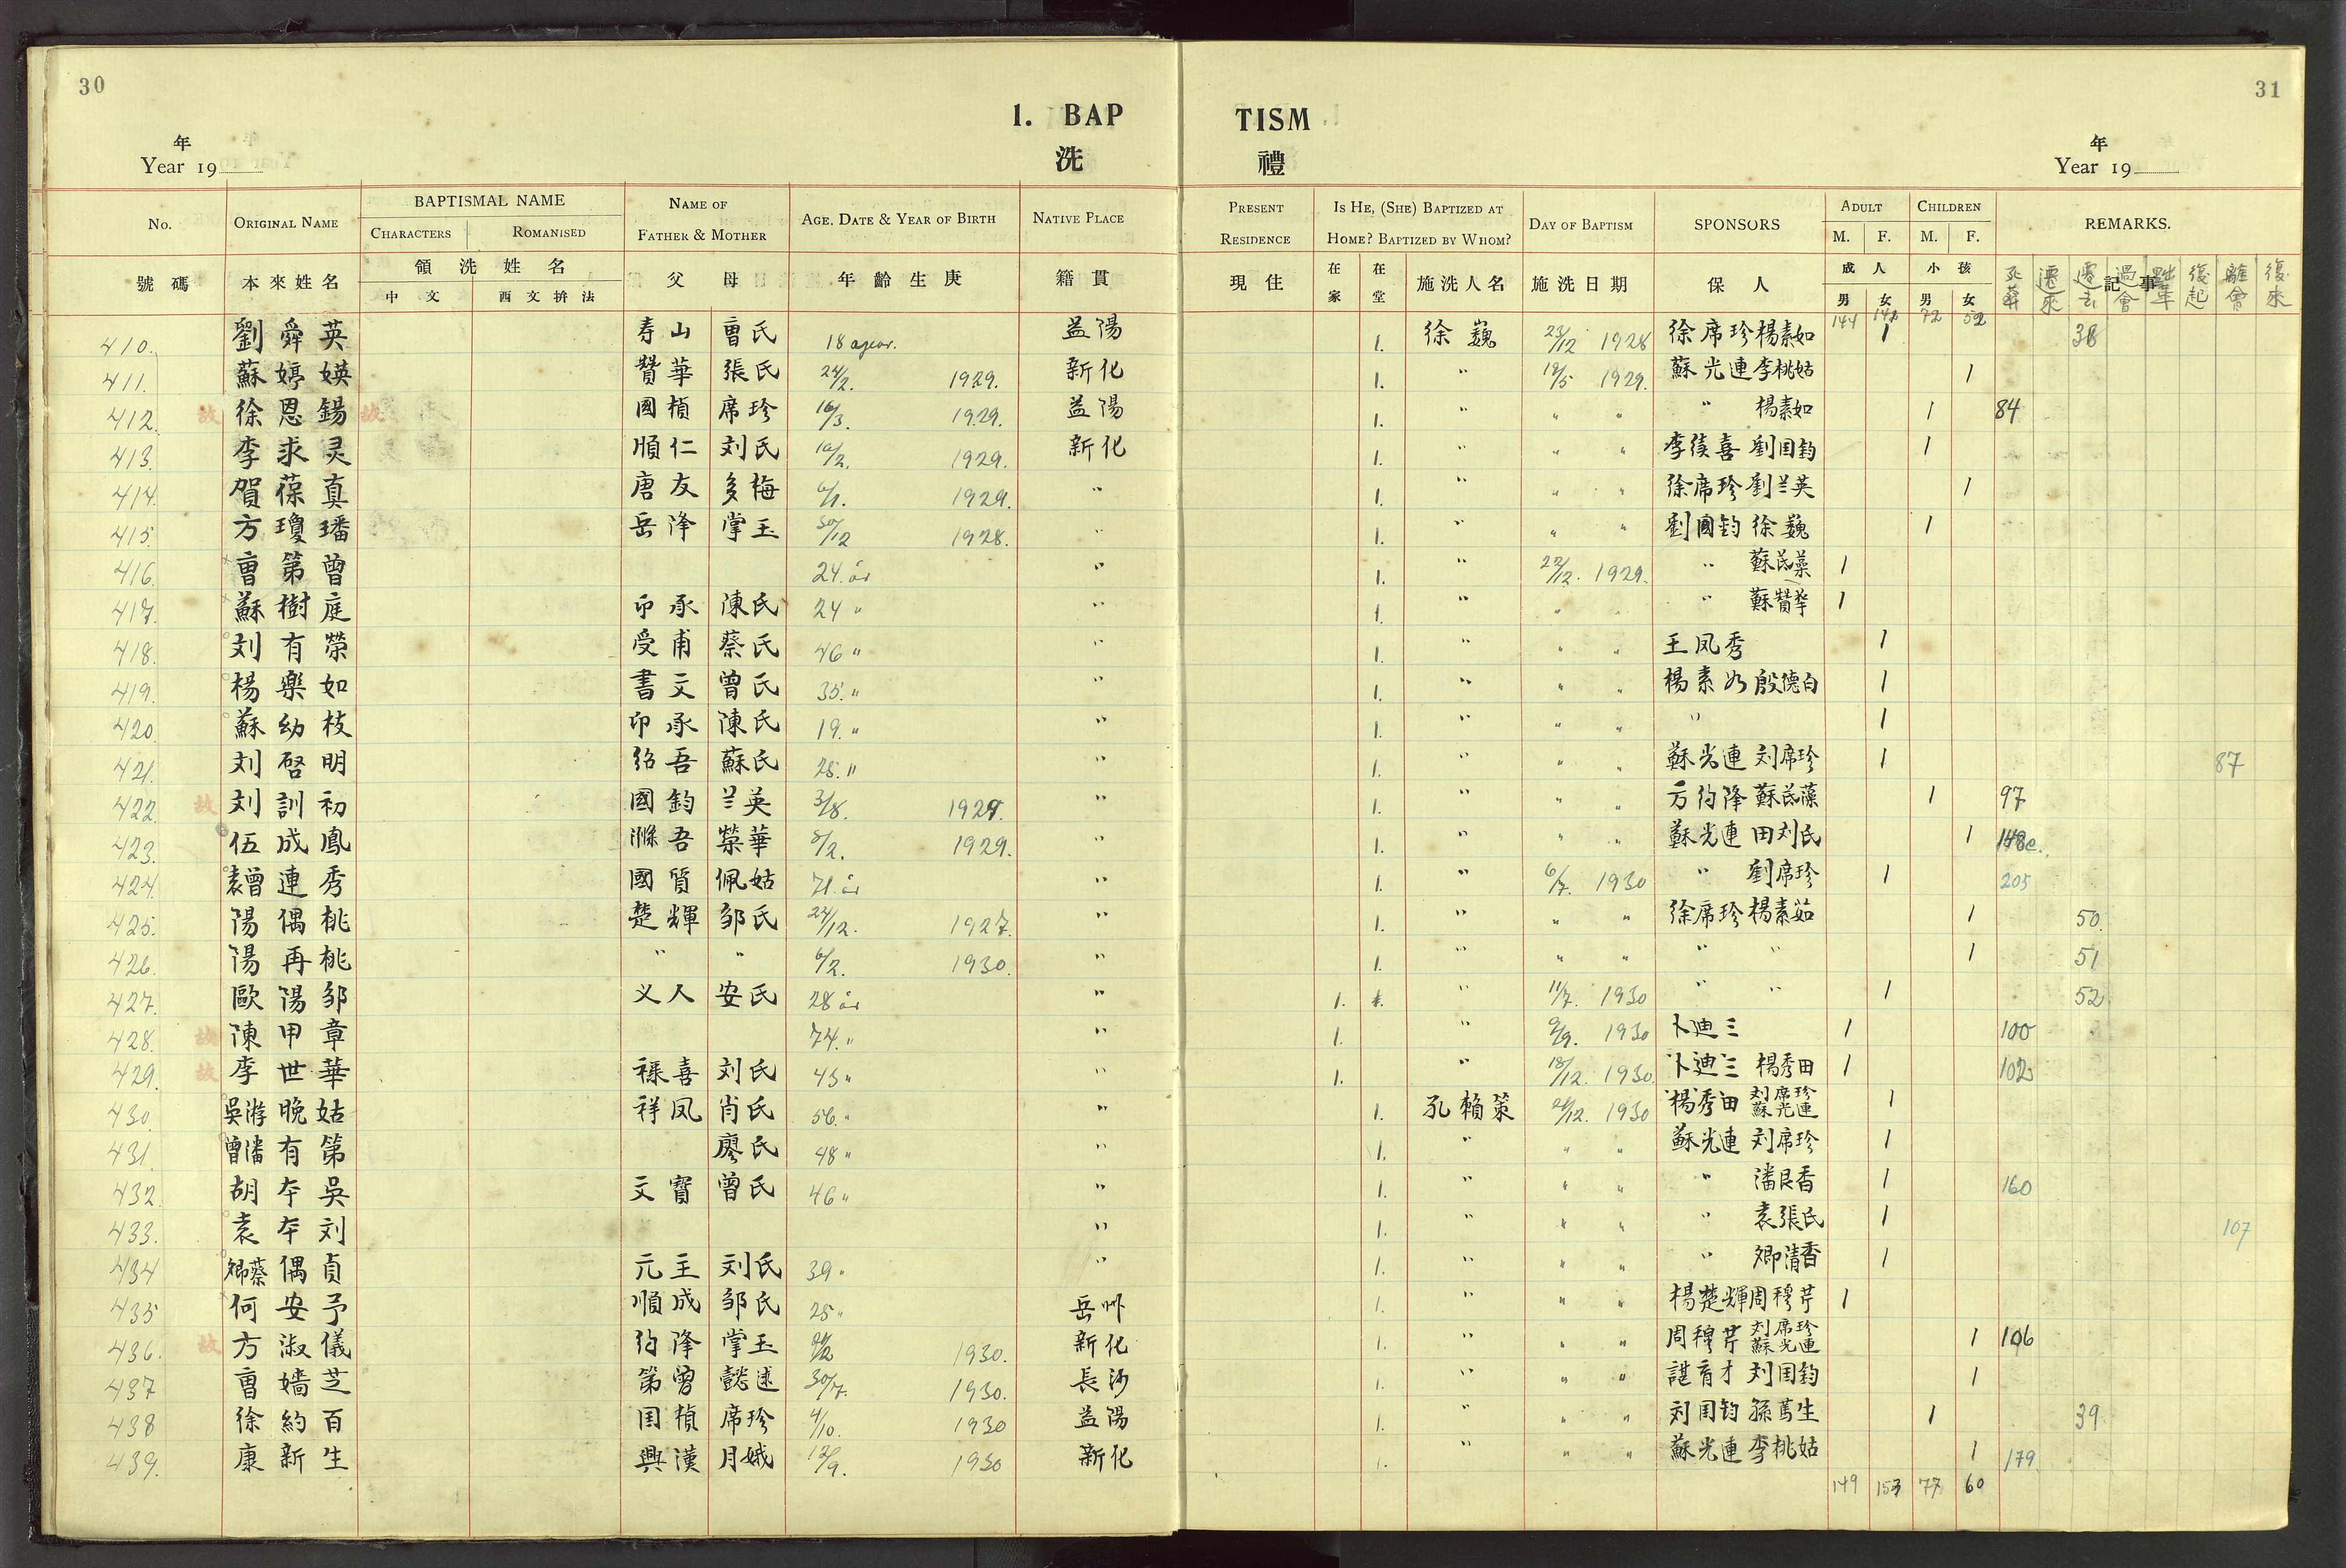 30
31
1. BAP
TISM
年
Year 19
洗
禮
年
Year 19
No.
ORIGINAL NAME
BAPTISMAL NAME
CHARACTERS
ROMANISED
NAME OF
FATHER & MOTHER
AGE. DATE & YEAR OF BIRTH
NATIVE PLACE
PRESENT
RESIDENCE
IS HE, (SHE) BAPTIZED AT
HOME? BAPTIZED BY WHOM?
DAY OF BAPTISM
SPONSORS
ADULT
M. F.
CHILDREN
M. F.
REMARKS.
號碼
本來姓名
領洗姓名
中文
西文拚法
父 母
年齡生庚
籍貫
現住
在家
在堂
施洗人名
施洗日期
保人
成人
男 女
小孩
男 女
記事
遷來 過會 復起 離會 復來
144 142 72 52
410. 劉舜英 寿山 曹氏 18 益陽 1. 徐巍 23/12 1928 徐席珍 楊素如 1 38
411. 蘇婷媖 贊華 張氏 24/2. 1929. 新化 1. " 19/5 1929. 蘇光連 李桃姑 1
412. 故 徐恩錫 故 國楨 席珍 16/3. 1929. 益陽 1. " " " " 楊素如 1 84
413. 李求灵 順仁 刘氏 10/2. 1929. 新化 1. " " " 李 喜 劉囯鈞 1
414. 賀葆真 唐友 多梅 6/1. 1929. " 1. " " " 徐席珍 劉兰英 1
415. 方瓊璠 岳降 掌玉 30/12 1928. " 1. " " " 劉國鈞 徐巍 1
416. 曹第曾 24. år " 1. " 22/12. 1929. " 蘇 藻 1
417. 蘇樹庭 印承 陳氏 24 " " 1. " " " " 蘇贊華 1
418. 刘有榮 受甫 蔡氏 46 " " 1. " " " 王凤秀 1
419. 楊樂如 書文 曾氏 35. " " 1. " " " 楊素如 殷德白 1
420. 蘇幼枝 印承 陳氏 19. " " 1. " " " " 1
421. 刘啓明 紹吾 蘇氏 25. " " 1. " " " 蘇光連 刘席珍 1 87
422. 故 刘訓初 國鈞 兰英 3/8. 1929. " 1. " " " 方約降 蘇 藻 1 97
423. 伍成鳳 滌吾 榮華 8/2. 1929. " 1. " " " 蘇光連 田刘氏 1 148
424. 袁曾連秀 國質 佩姑 71. år " 1. " 6/7. 1930 " 劉席珍 1 205
425. 陽偶桃 楚輝 邹氏 24/12. 1927. " 1. " " " 徐席珍 楊素茹 1 50.
426. 陽再桃 " " 6/2. 1930. " 1. " " " " " 1 51
427. 歐陽邹 义人 安氏 28 år " 1. " 11/7. 1930 " " 1 52
428. 故 陳甲章 74. " " 1. " 9/9. 1930 卜迪三 1 100
429. 故 李世華 禄喜 刘氏 43 " " 1. " 18/12. 1930. 卜迪三 楊秀田 1 102
430. 吳游晚姑 祥凤 肖氏 56. " " 1. 孔賴策 21/12. 1930 楊秀田 刘席珍 蘇光連 1
431. 曾潘有第 廖氏 48 " " 1. " " " 蘇光連 刘席珍 1
432. 胡本吳 文寳 曾氏 46 " " 1. " " " " 潘艮香 1 160
433. 袁本刘 " 1. " " " " 袁張氏 1 107
434 卿蔡偶貞 元主 刘氏 39 " " 1. " " " " 卿清香 1
435 何安予 順成 邹氏 25 " 岳州 1. " " " 楊楚輝 周穆芹 1
436. 故 方淑儀 約降 掌玉 1930. 新化 1. " " " 周穆芹 刘席珍 蘇光連 1 106
437 曹嬙芝 第曾 懿述 30/7. 1930. 長沙 1. " " " 諶育才 刘囯鈞 1
438 徐約百 囯楨 席珍 4/10. 1930 益陽 1. " " " 刘囯鈞 孫篤生 1 39
439. 康新生 興漢 月娥 12/9. 1930 新化 1. " " " 蘇光連 李桃姑 1 179
149 153 77 60